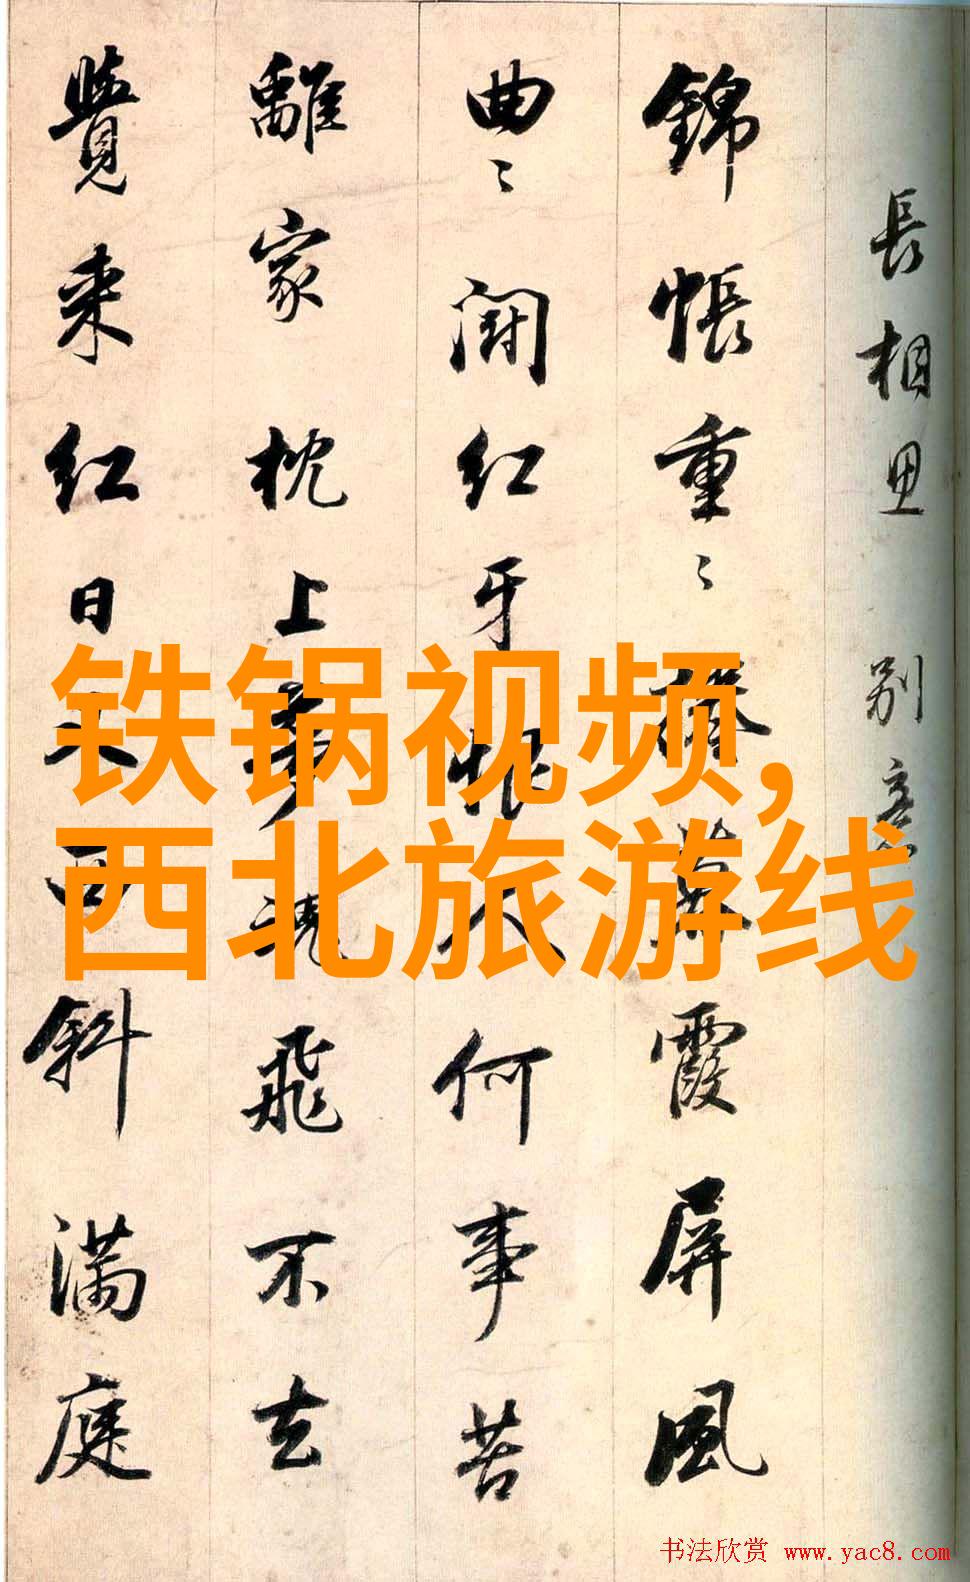 長相思 別意
錦帳重〻捲暮霞屏風
曲〻鬪紅牙恨人何事苦
離家枕上夢魂飛不去
覺来紅日又西斜滿庭
铁锅视频,
西北旅游线
书法欣赏 www.yac8.com